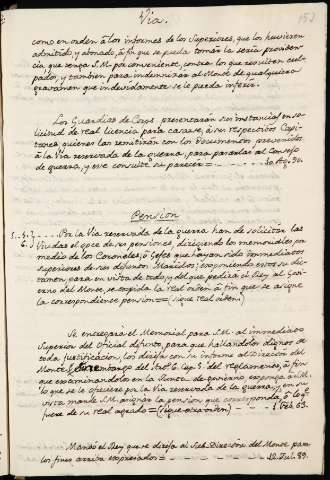 Via.
152
como en orden à los informes de los Superiores, que los huvieren
admitido, y abonado, à fin que se pueda tomar la seria providen-
cia que tenga S.M. por conveniente, contra los que resulten cul-
pados, y tambien para indemnizar al Monte de qualquiera
gravamen que indevidamente se le pueda inferir.
Los Guardias de Corps presentarán sus instancias en so-
licitud de real licencia para casarse, à sus respectivos Capi-
tanes quienes las remitirán con los documentos prevenidos
à la Via reservada de la guerra, para pasarlas al Consejo
de guerra, y este consulte su parecer = 30. 90.
Pension
Por la Via reservada de la guerra han de solicitar las
Viudas el goce de sus pensiones, dirigiendo los memoriales por
medio de los Coroneles, ò Gefes que hayan sido inmediatos
superiores de sus difuntos Maridos; exponiendo estos su dic-
tamen, para en vista de todo, y del que pedirá el Rey al Gov-
ierno del Monte, se expida la real orden à fin que se asigne
la correspondiente pension = (sigue real orden)
Se entregará el Memorial para S.M. al immediato
Superior del Oficial difunto, para que hallandolos dignos de
toda justificacion, los dirija con su informe al Director del
Monte del Cap. 8. del reglamento, à fin
que examinandolos en la Junta de govierno exponga à S.M.
lo que se le ofreciere por la Via reservada de la guerra, y en su
vista mande S.M. asignar la pension que corresponda, ò lo que
fuere de su real agrado = (sigue otra orden) 63.
Mandó el Rey que se dirija al Sub-Director del Monte para
los fines arriba expresados = 12. 89.